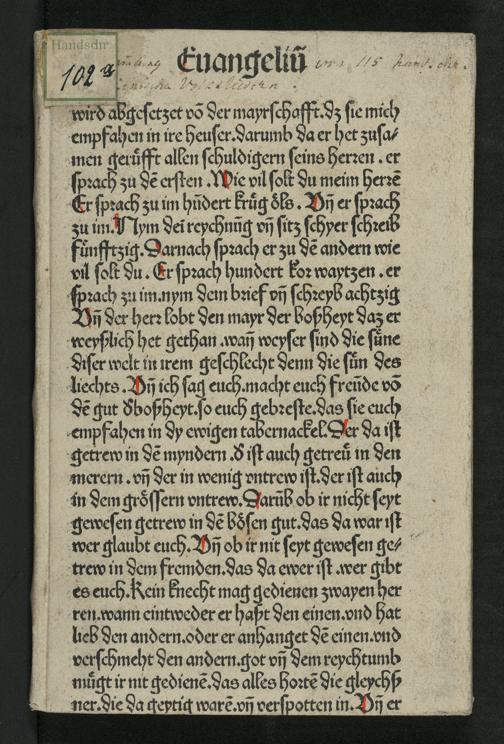 Handschr.
102
Euangeliū
von 115 hand.
wird abgesetzet vō der mayrschafft.dz sie mich
empfahen in ire heuser.darumb da er het zusa-
men gerůfft allen schuldigern seins herren . er
sprach zu dē ersten .Wie vil solt du meim herrē
Er sprach zu im hūdert krůg öls . Vn̄ er sprach
zu im.Nym dei reychnūg vn̄ sitz schyer schreib
fünfftzig.Darnach sprach er zu dē andern wie
vil solt du . Er sprach hundert kor waytzen . er
sprach zu im.nym dem brief vn̄ schreyb achtzig
Vn̄ der herr lobt den mayr der boßheyt daz er
weyßlich het gethan .wan̄ weyser sind die sūne
diser welt in irem geschlecht denn die sün des
liechts . Vn̄ ich sag euch.macht euch freūde vō
dē gut d͛boßheyt.so euch gebreste.das sie euch
empfahen in dy ewigen tabernackel.Der da ist
getrew in dē myndern.d͛ ist auch getreü in den
merern . vn̄ der in wenig vntrew ist.der ist auch
in dem grössern vntrew.Darūb ob ir nicht seyt
gewesen getrew in dē bösen gut.das da war ist
wer glaubt euch.Vn̄ ob ir nit seyt gewesen ge-
trew in dem fremden.das da ewer ist .wer gibt
es euch.Kein knecht mag gedienen zwayen her
ren.wann eintweder er haßt den einen.vnd hat
lieb den andern.oder er anhanget dē einen.vnd
verschmeht den andern.got vn̄ dem reychtumb
mügt ir nit gedienē.das alles hortē die gleychß
ner.die da geytig warē.vn̄ verspotten in.Vn̄ er